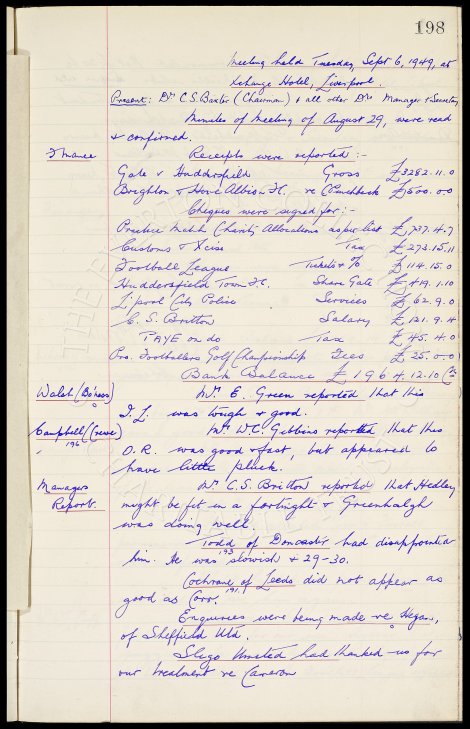 198
Meeting held Tuesday, Sept 6, 1949, at
Xchange Hotel, Liverpool.
Present: Dr C.S. Baxter (Chairman) & all other Drs Manager & Secretary
Minutes of Meeting of August 29, were read
& confirmed.
Finance Receipts were reported :-
Gate v Huddersfield Gross £3282.11.0
Brighton & Hove Albion F.C. re C Pinchbeck £500.0.0
Cheques were signed for :-
Practice Match Charity Allocations as per list £737.4.7
Customs & Xcise Tax £273.15.11
Football League Tickets & % £114.15.0
Huddersfield Town F.C. Share Gate £419.1.10
L'pool City Police Services £62.9.0
C. S. Britton Salary £121.9.4
PAYE on do Tax £45.4.0
Pro. Footballers Golf Championship Fees £25.0.0
Bank Balance £1964.12.10
Walsh (Bo'ness) Mr E. Green reported that this
I.L. was tough & good.
Campbell (Crewe) Mr W.C. Gibbins reported that this
196
O.R. was good & fast, but appeared to
have little pluck.
Managers Mr C.S. Britton reported that Hedley
Report. might be fit in a fortnight & Greenhalgh
was doing well.
Todd of Doncaster had disappointed
him. He was slowish & 29-30.
193
Cochrane of Leeds did not appear as
191
good as Corr.
Enquiries were being made re Hagan,
of Sheffield Utd.
Sligo United had thanked us for
our treatment re Cameron